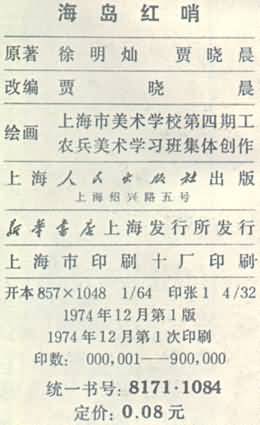 海岛红哨
原著 徐明灿 贾晓晨
改编 贾晓晨
绘画 上海市美术学校第四期工
农兵美术学习班集体创作
上海人民出版社出版
上海绍兴路五号
新华书店上海发行所发行
上海市印刷十厂印刷
开本 857×1048 1/64 印张 1 4/32
1974年12月第1版
1974年12月第1次印刷
印数: 000,001——900,000
统一书号: 8171·1084
定价: 0.08元